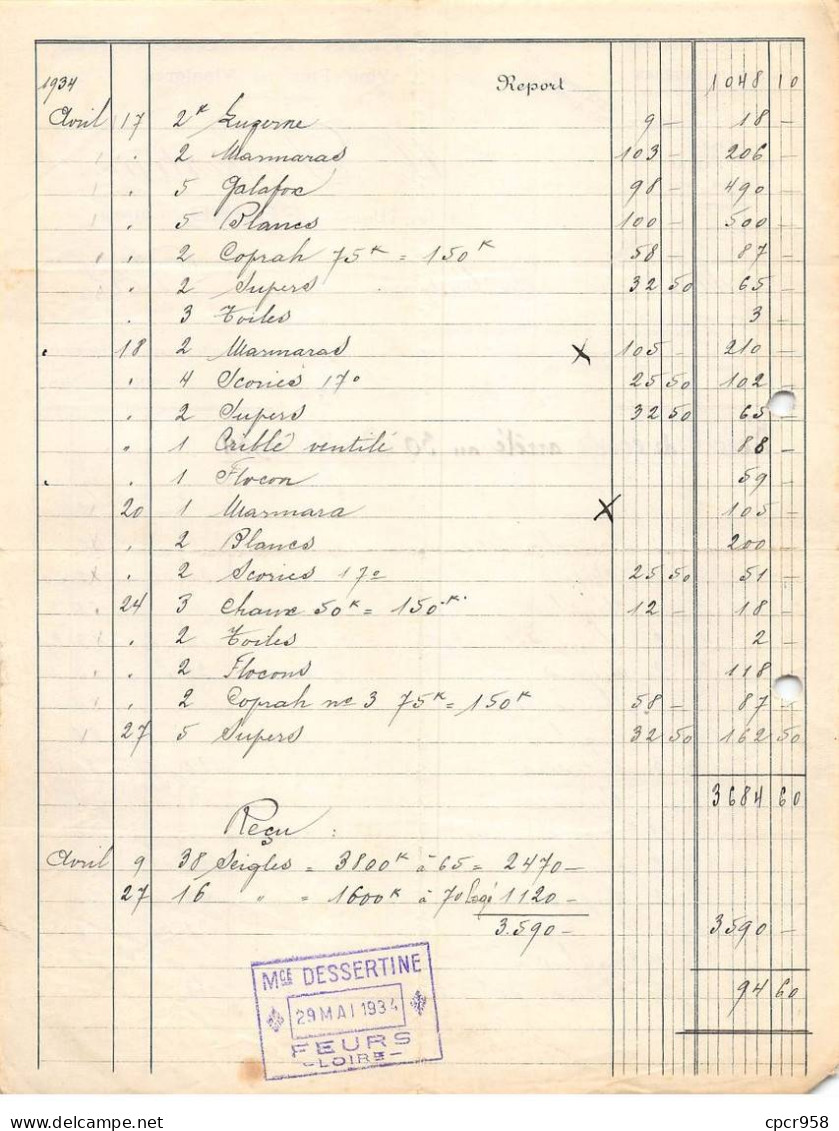 1934 Report 1048 10
Avril 17 2 K Luzerne 9 - 18 -
" 2 Marmaras 103 - 206 -
" 5 Galafox 98 - 490 -
" 5 Blancs 100 - 500 -
" 2 Coprah 75 K = 150 K 58 - 87 -
" 2 Supers 32 50 65 -
" 3 Toiles 3 -
18 2 Marmaras X 105 - 210 -
" 4 Scories 17° 25 50 102 -
" 2 Supers 32 50 65 -
" 1 Criblé ventilé 88 -
" 1 Flocon 59 -
20 1 Marmara X 105 -
" 2 Blancs 200 -
" 2 Scories 17° 25 50 51 -
24 3 Chaux 50 K = 150 K 12 - 18 -
" 2 Toiles 2 -
" 2 Flocons 118
" 2 Coprah no 3 75 K = 150 K 58 - 87 -
27 5 Supers 32 50 162 50
3684 60
Reçu :
Avril 9 38 Seigles = 3800 K à 65 = 2470 -
27 16 " " = 1600 K à 70 logé 1120 -
3.590 - 3.590 -
94 60
MCE DESSERTINE
29 MAI 1934
FEURS
- LOIRE -
cpcr958